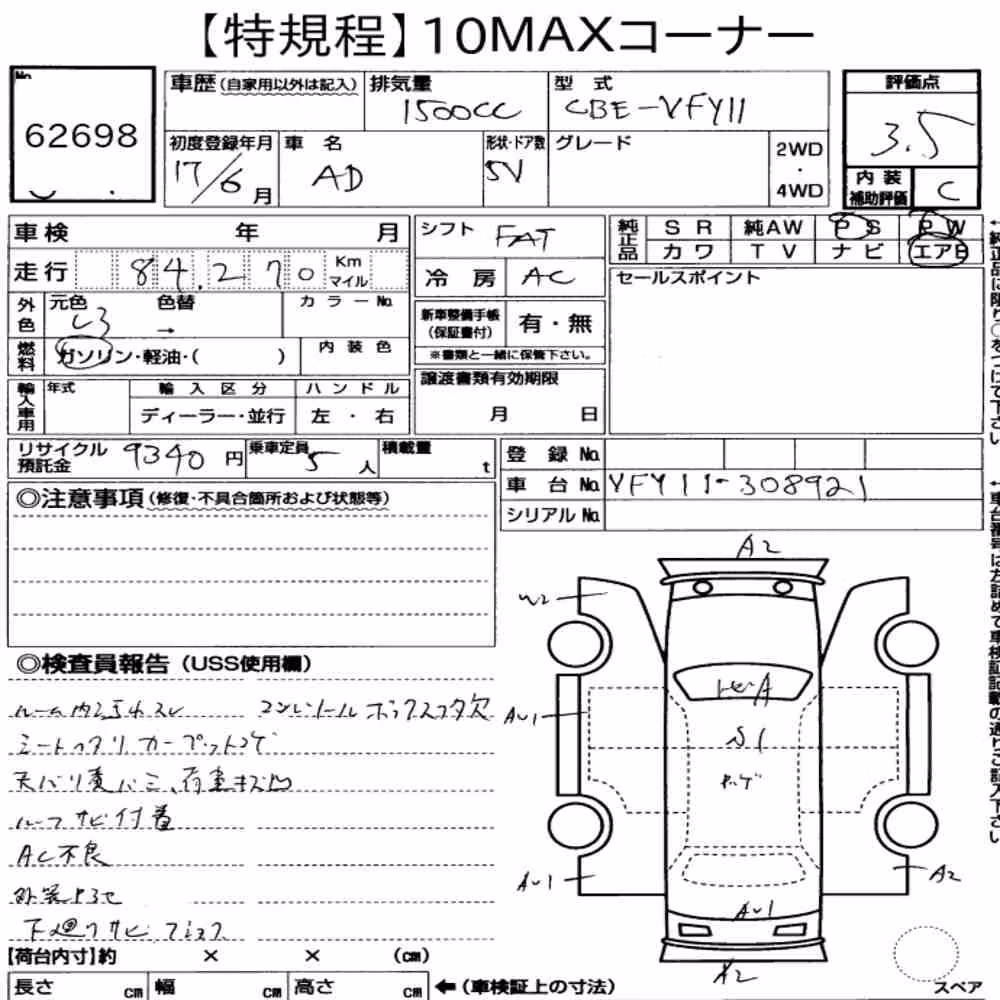 【特規程】10MAXコーナー
No.
62698
車歴(自家用以外は記入)
排気量
1500CC
型式
CBE-VFY11
評価点
3.5
初度登録年月
17/6月
車名
AD
形状・ドア数
5V
グレード
2WD
・
4WD
内装
補助評価
C
車検 年 月
走行 84,270 Km
マイル
シフト FAT
冷房 AC
純正品
SR 純AW PS PW
カワ TV ナビ エアB
セールスポイント
外色
元色
シロ
色替
→
カラーNo.
燃料
ガソリン・軽油・( )
内装色
新車整備手帳
(保証書付)
有・無
※書類と一緒に保管下さい。
輸入車用
年式
輸入区分
ハンドル
ディーラー・並行
左・右
譲渡書類有効期限
月 日
リサイクル
預託金
9340円
乗車定員
5人
積載量
t
登録No.
車台No. VFY11-308921
シリアルNo.
◎注意事項(修復・不具合箇所および状態等)
◎検査員報告(USS使用欄)
ルーム内ヨゴレスレ
コンソールボックスフタ欠
シートヘタリ カーペットコゲ
ルーフサビ付着
AC不良
下廻りサビ
【荷台内寸】約 × × (cm)
長さ cm 幅 cm 高さ cm
←(車検証上の寸法)
A2
W2
AU1
S1
ヤケ
AU1
A2
AU1
X2
スペア
←純正品に限り○をつけて下さい
←車台番号は左詰めで車検証記載の通りご記入下さい